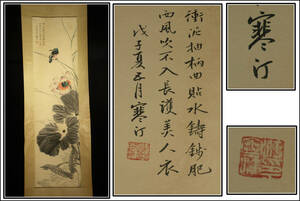 衝泥抽柄曲貼水鑄錢肥
西風吹不入長護美人衣
戊子夏五月寒汀
寒汀